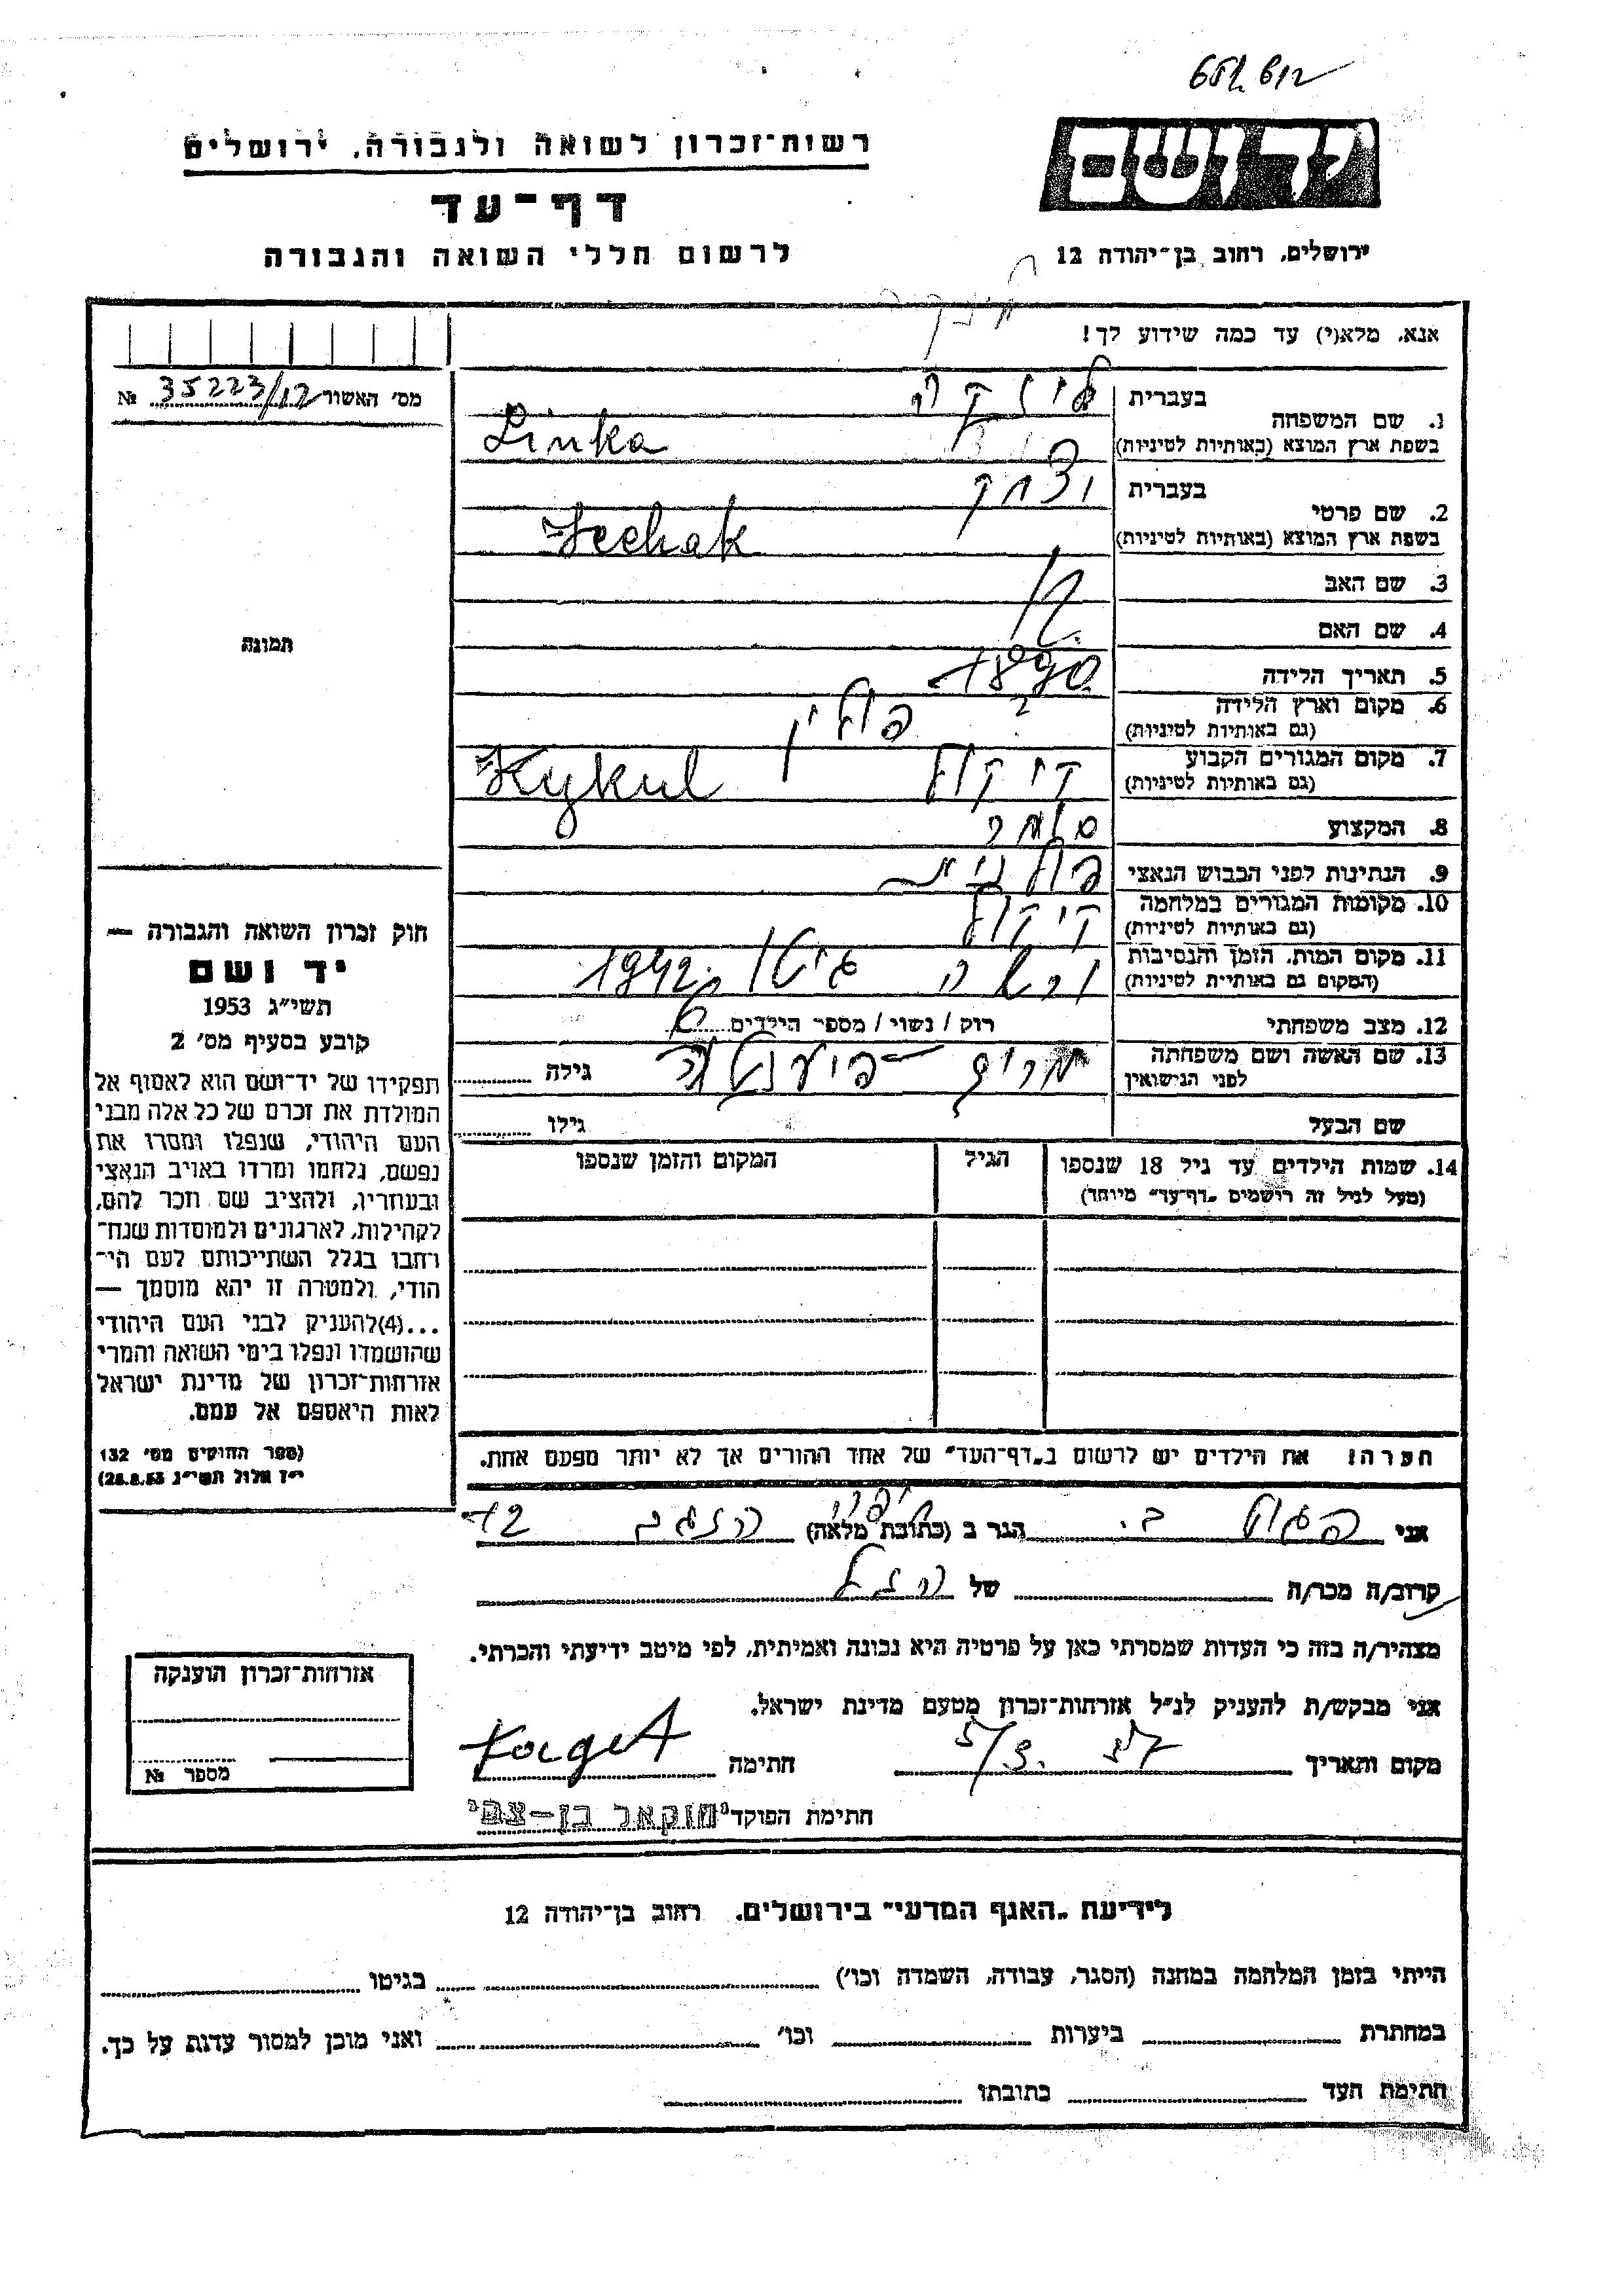 רשות־זכרון לשואה ולגבורה, ירושלים
יד ושם
דף־עד
לרשום חללי השואה והגבורה
ירושלים, רחוב בן־יהודה 12
אנא, מלא(י) עד כמה שידוע לך!
מס׳ האשור 35223/12 №
1. שם המשפחה
בעברית לינקה
בשפת ארץ המוצא (באותיות לטיניות) Linka
2. שם פרטי
בעברית יצחק
בשפת ארץ המוצא (באותיות לטיניות)
3. שם האב
4. שם האם
5. תאריך הלידה 1890
6. מקום וארץ הלידה
(גם באותיות לטיניות) פולין
7. מקום המגורים הקבוע
(גם באותיות לטיניות) קיקול Kykul
8. המקצוע סוחר
9. הנתינות לפני הכבוש הנאצי פולנית
10. מקומות המגורים במלחמה
(גם באותיות לטיניות) קיקול
11. מקום המות, הזמן והנסיבות
(המקום גם באותיות לטיניות) ורשה גיטו 1942
12. מצב משפחתי רוק / נשוי / מספר הילדים 6
13. שם האשה ושם משפחתה
לפני הנישואין מרים גילה
שם הבעל גילו
14. שמות הילדים עד גיל 18 שנספו
(מעל לגיל זה רושמים „דף־עד״ מיוחד)
הגיל
המקום והזמן שנספו
תמונה
חוק זכרון השואה והגבורה —
יד ושם
תשי״ג 1953
קובע בסעיף מס׳ 2
תפקידו של יד־ושם הוא לאסוף אל
המולדת את זכרם של כל אלה מבני
העם היהודי, שנפלו ומסרו את
נפשם, נלחמו ומרדו באויב הנאצי
ובעוזריו, ולהציב שם וזכר להם,
לקהילות, לארגונים ולמוסדות שנח־
רחבו בגלל השתייכותם לעם הי־
הודי, ולמטרה זו יהא מוסמך —
...(4)להעניק לבני העם היהודי
שהושמדו ונפלו בימי השואה והמרי
אזרחות־זכרון של מדינת ישראל
לאות היאספם אל עמם.
(ספר החוקים מס׳ 132
י״ז אלול תשי״ג 28.8.53)
הערה! את הילדים יש לרשום ב„דף־העד״ של אחד ההורים אך לא יותר מפעם אחת.
אני הגר ב (כתובת מלאה) 12
קרוב/ה מכר/ה של
מצהיר/ה בזה כי העדות שמסרתי כאן על פרטיה היא נכונה ואמיתית, לפי מיטב ידיעתי והכרתי.
אני מבקש/ת להעניק לנ״ל אזרחות־זכרון מטעם מדינת ישראל.
מקום ותאריך חתימה
חתימת הפוקד בן-צבי
אזרחות־זכרון הוענקה
מספר №
לידיעת „האגף המדעי״ בירושלים, רחוב בן־יהודה 12
הייתי בזמן המלחמה במחנה (הסגר, עבודה, השמדה וכו׳) בגיטו
במחתרת ביערות וכו׳ ואני מוכן למסור עדות על כך.
חתימת העד כתובתו